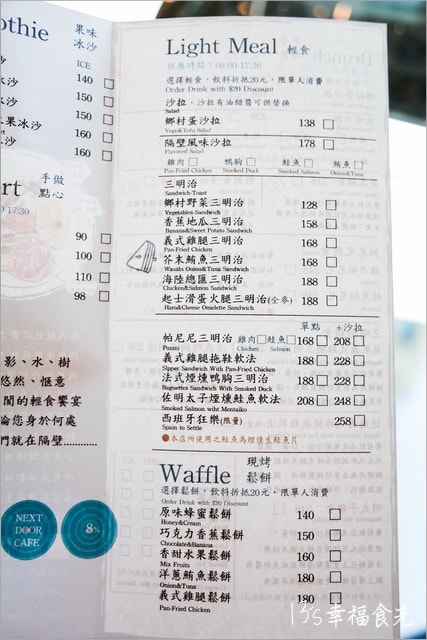 oothie 果味
冰沙
ICE
140
150
150
果冰沙 160
沙 160
rt 手做
點心
17:30
90
100
110
98
影、水、樹
悠然、愜意
閒的輕食饗宴
論您身於何處
們就在隔壁............
NEXT
DOOR
CAFE
8%
Light Meal 輕食
供應時間：08:00-17:30
選擇輕食，飲料折抵20元，限單人消費
Order Drink with $20 Discount
沙拉，沙拉有油醋醬可供替換
Salad
鄉村蛋沙拉 138
Vege&Tofu Salad
隔壁風味沙拉 178
Flavored Salad
雞肉 鴨胸 鮭魚 鮪魚
Pan-Fried Chicken Smoked Duck Smoked Salmon Onion&Tuna
三明治
Sandwich-Toast
鄉村野菜三明治 128
Vegetables Sandwich
香蕉地瓜三明治 158
Banana&Sweet Potato Sandwich
義式雞腿三明治 168
Pan-Fried Chicken Sandwich
芥末鮪魚三明治 168
Wasabi Onion&Tuna Sandwich
海陸總匯三明治 188
Chicken&Salmon Sandwich
起士滑蛋火腿三明治(全麥) 188
Ham&Cheese Omelette Sandwich
單點 +沙拉
帕尼尼三明治 雞肉 鮭魚 168 208
Panini Chicken Salmon
義式雞腿拖鞋軟法 188 228
Sipper Sandwich With Pan-Fried Chicken
法式煙燻鴨胸三明治 188 228
Baguettes Sandwich With Smoked Duck
佐明太子煙燻鮭魚軟法 208 248
Smoked Salmon wiht Mentaiko
西班牙狂樂(限量) 258
Spain to Settle
●本店所使用之鮭魚為煙燻生鮭魚片
Waffle 現烤
鬆餅
選擇鬆餅，飲料折抵20元，限單人消費
Order Drink with $20 Discount
原味蜂蜜鬆餅 140
Honey&Cream
巧克力香蕉鬆餅 150
Chocolate&Banana
香甜水果鬆餅 160
Mix Fruits
洋蔥鮪魚鬆餅 180
Onion&Tuna
義式雞腿鬆餅 180
Pan-Fried Chicken
幸福食光